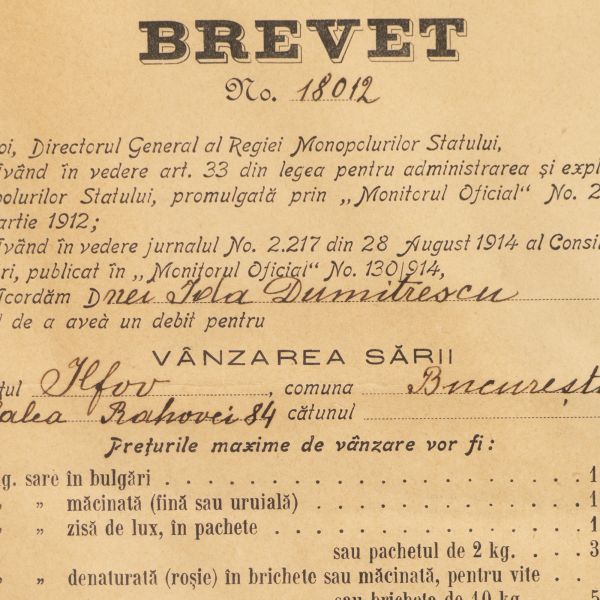 BREVET
No. 18012
oi, Directorul General al Regiei Monopolurilor Statului,
vând în vedere art. 33 din legea pentru administrarea și expl
polurilor Statului, promulgată prin „Monitorul Oficial“ No. 2
artie 1912;
vând în vedere jurnalul No. 2.217 din 28 August 1914 al Consil
ri, publicat în „Monitorul Oficial“ No. 130|914,
cordăm Dnei Ida Dumitrescu
l de a aveà un debit pentru
VÂNZAREA SĂRII
țul Ilfov, comuna Bucurest
alea Rahovei 84 cătunul
Prețurile maxime de vânzare vor fi:
g. sare în bulgări 1
„ „ măcinată (fină sau uruială) 1
„ „ zisă de lux, în pachete 1
sau pachetul de 2 kg. 3
„ „ denaturată (roșie) în brichete sau măcinată, pentru vite
sau bricheta de 10 kg. 5